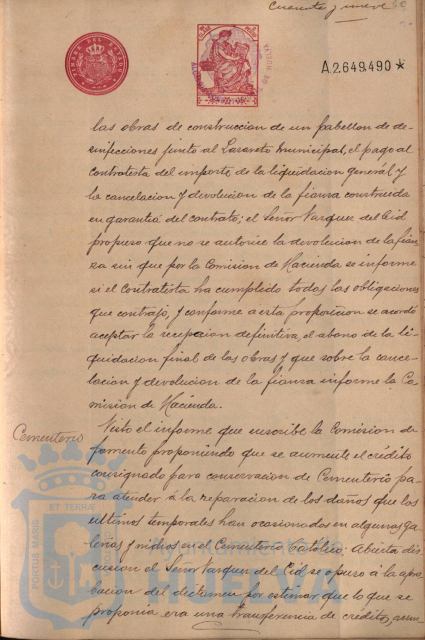 Cuarenta y nueve
TIMBRE DEL ESTADO
A.2.649.490★
las obras de construccion de un pabellon de de-
sinfecciones junto al Lazareto municipal, el pago al
contratista del importe de la liquidacion general y
la cancelacion y devolucion de la fianza constituida
en garantia del contrato; el Señor Vazquez del Cid
propuso que no se autorice la devolucion de la fian-
za sin que por la Comision de Hacienda se informe
si el Contratista ha cumplido todas las obligaciones
que contrajo, y conforme a esta proposicion se acordó
aceptar la recepcion definitiva, el abono de la li-
quidacion final de las obras y que sobre la cance-
lacion y devolucion de la fianza informe la Co-
mision de Hacienda.
Cementerio
Visto el informe que suscribe la Comision de
fomento proponiendo que se aumente el crédito
consignado para conservacion de Cementerio pa-
ra atender á la reparacion de los daños que los
ultimos temporales han ocasionado en algunas ga-
lerias y nichos en el Cementerio Católico: Abierta dis-
cusion el Señor Vazquez del Cid se opuso á la apro-
bacion del dictamen por estimar que lo que se
proponia era una transferencia de crédito,
PORTUS MARIS
ET TERRAE
HUELVA